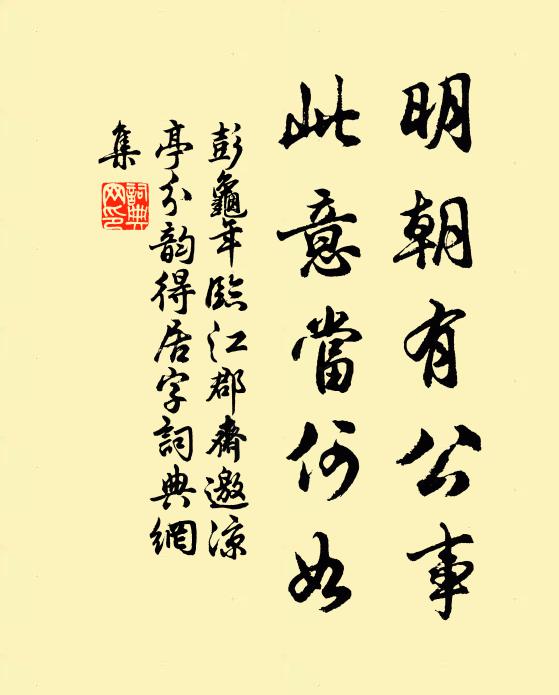 明朝有公事
此意當何如
彭龜年臨江郡齋邀涼
亭分韵得居字詞典網
集
詞典
网印